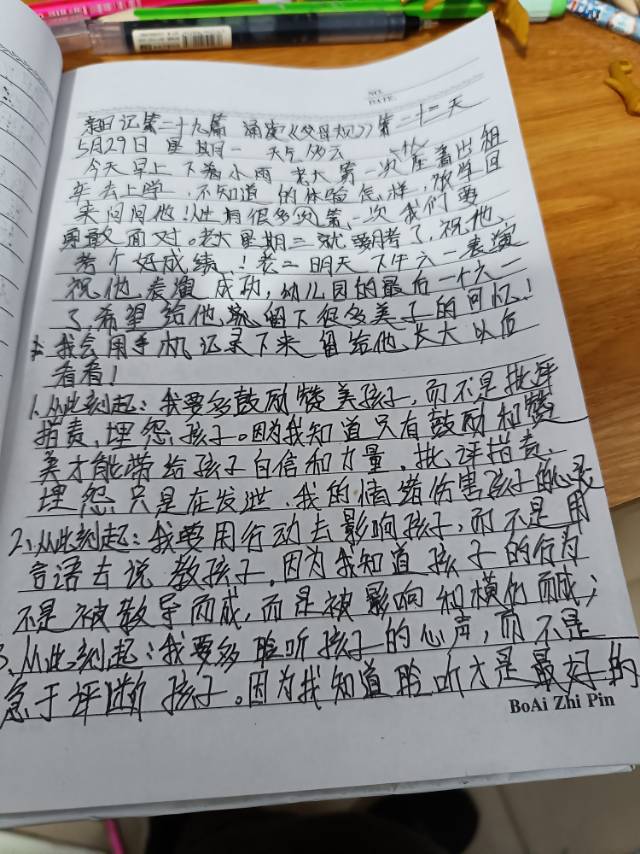 NO.
DATE.
亲日记第二十九篇 诵读《父母规》第二十二天
5月29日 星期一 天气多云
今天早上下着小雨 老大第一次坐着出租
车去上学,不知道他的体验怎样,放学回
来问问他!人生有很多次第一次我们要
勇敢面对。老大星期三就要期考了,祝他
考个好成绩!老二明天下午六一表演
祝他表演成功,幼儿园的最后一个六一
了,希望给他留下很多美好的回忆!
我会用手机记录下来留给他长大以后
看看!
1.从此刻起:我要多鼓励赞美孩子,而不是批评
指责、埋怨孩子。因为我知道只有鼓励和赞
美才能带给孩子自信和力量,批评指责、
埋怨只是在发泄我的情绪伤害孩子的心灵
2.从此刻起:我要用行动去影响孩子,而不是用
言语去说教孩子,因为我知道孩子的行为
不是被教导而成,而是被影响和模仿而成;
3.从此刻起:我要多聆听孩子的心声,而不是
急于评断孩子。因为我知道聆听才是最好的
BoAi Zhi Pin